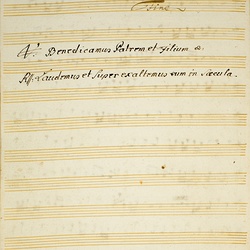 Fine
V. Benedicamus Patrem et Filium &.
R. Laudemus et Superexaltemus eum in sæcula.